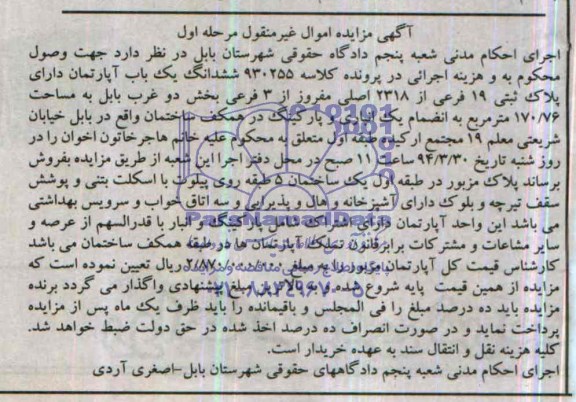 آگهی مزایده اموال غیرمنقول مرحله اول
اجرای احکام مدنی شعبه پنجم دادگاه حقوقی شهرستان بابل در نظر دارد جهت وصول
محکوم به و هزینه اجرائی در پرونده کلاسه ۹۳۰۲۵۵ ششدانگ یک باب آپارتمان دارای
پلاک ثبتی ۱۹ فرعی از ۲۳۱۸ اصلی مفروز از ۳ فرعی بخش دو غرب بابل به مساحت
۱۷۰/۷۶ مترمربع به انضمام یک انباری و پارکینگ در همکف ساختمان واقع در بابل خیابان
شریعتی معلم ۱۹ مجتمع ارکیده طبقه اول متعلق به محکوم علیه خانم هاجرخاتون اخوان را در
روز شنبه تاریخ ۹۴/۳/۳۰ ساعت ۱۱ صبح در محل دفتر اجرا این شعبه از طریق مزایده بفروش
برساند پلاک مزبور در طبقه اول یک ساختمان ۵ طبقه روی پیلوت با اسکلت بتنی و پوشش
سقف تیرچه و بلوک دارای آشپزخانه و هال و پذیرایی و سه اتاق خواب و سرویس بهداشتی
می باشد این واحد آپارتمان دارای اشتراکات شامل پارکینگ و انبار با قدرالسهم از عرصه و
سایر مشاعات و مشترکات برابر قانون تملک آپارتمان ها در طبقه همکف ساختمان می باشد
کارشناس قیمت کل آپارتمان مزبور را به مبلغ ریال تعیین نموده است که
مزایده از همین قیمت پایه شروع شده و به بالاترین مبلغ پیشنهادی واگذار می گردد برنده
مزایده باید ده درصد مبلغ را فی المجلس و باقیمانده را باید ظرف یک ماه پس از مزایده
پرداخت نماید و در صورت انصراف ده درصد اخذ شده در حق دولت ضبط خواهد شد.
کلیه هزینه نقل و انتقال سند به عهده خریدار است.
اجرای احکام مدنی شعبه پنجم دادگاههای حقوقی شهرستان بابل-اصغری آردی